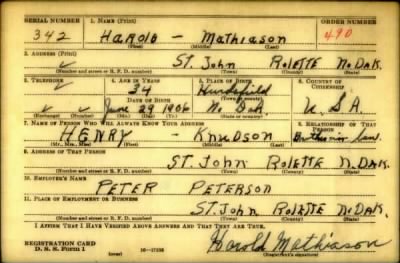 SERIAL NUMBER 1. NAME (Print) ORDER NUMBER
342 HAROLD - Mathiason 490
(First) (Middle) (Last)
2. ADDRESS (Print)
✓ ST. John ROLETTE No DAK.
(Number and street or R. F. D. number) (Town) (County) (State)
3. TELEPHONE 4. AGE IN YEARS 5. PLACE OF BIRTH 6. COUNTRY OF CITIZENSHIP
34
DATE OF BIRTH
✓ ✓ June 29 1906 No DAK. U.S.A.
(Exchange) (Number) (Mo.) (Day) (Yr.) (State or country)
7. NAME OF PERSON WHO WILL ALWAYS KNOW YOUR ADDRESS 8. RELATIONSHIP OF THAT PERSON
HENRY - KNUDSON Brother in law
(Mr., Mrs., Miss) (First) (Middle) (Last)
9. ADDRESS OF THAT PERSON
ST. JOHN ROLETTE N. DAK.
(Number and street or R. F. D. number) (Town) (County) (State)
10. EMPLOYER'S NAME
PETER PETERSON
11. PLACE OF EMPLOYMENT OR BUSINESS
ST. JOHN ROLETTE No DAK.
(Number and street or R. F. D. number) (Town) (County) (State)
I AFFIRM THAT I HAVE VERIFIED ABOVE ANSWERS AND THAT THEY ARE TRUE.
REGISTRATION CARD
D. S. S. Form 1 (over) 16-17105 Harold Mathiason
(Registrant's signature)